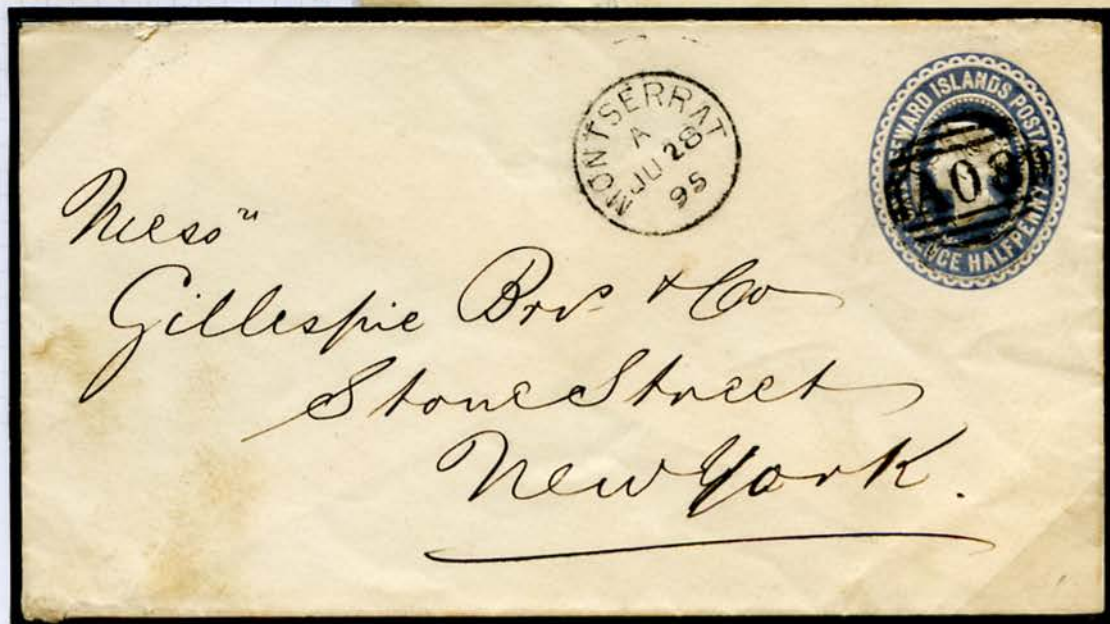 MONTSERRAT
A
JU 28
95
LEEWARD ISLANDS POSTAGE
PENCE HALFPENNY
A08
Messrs
Gillespie Bros & Co
Stone Street
New York.